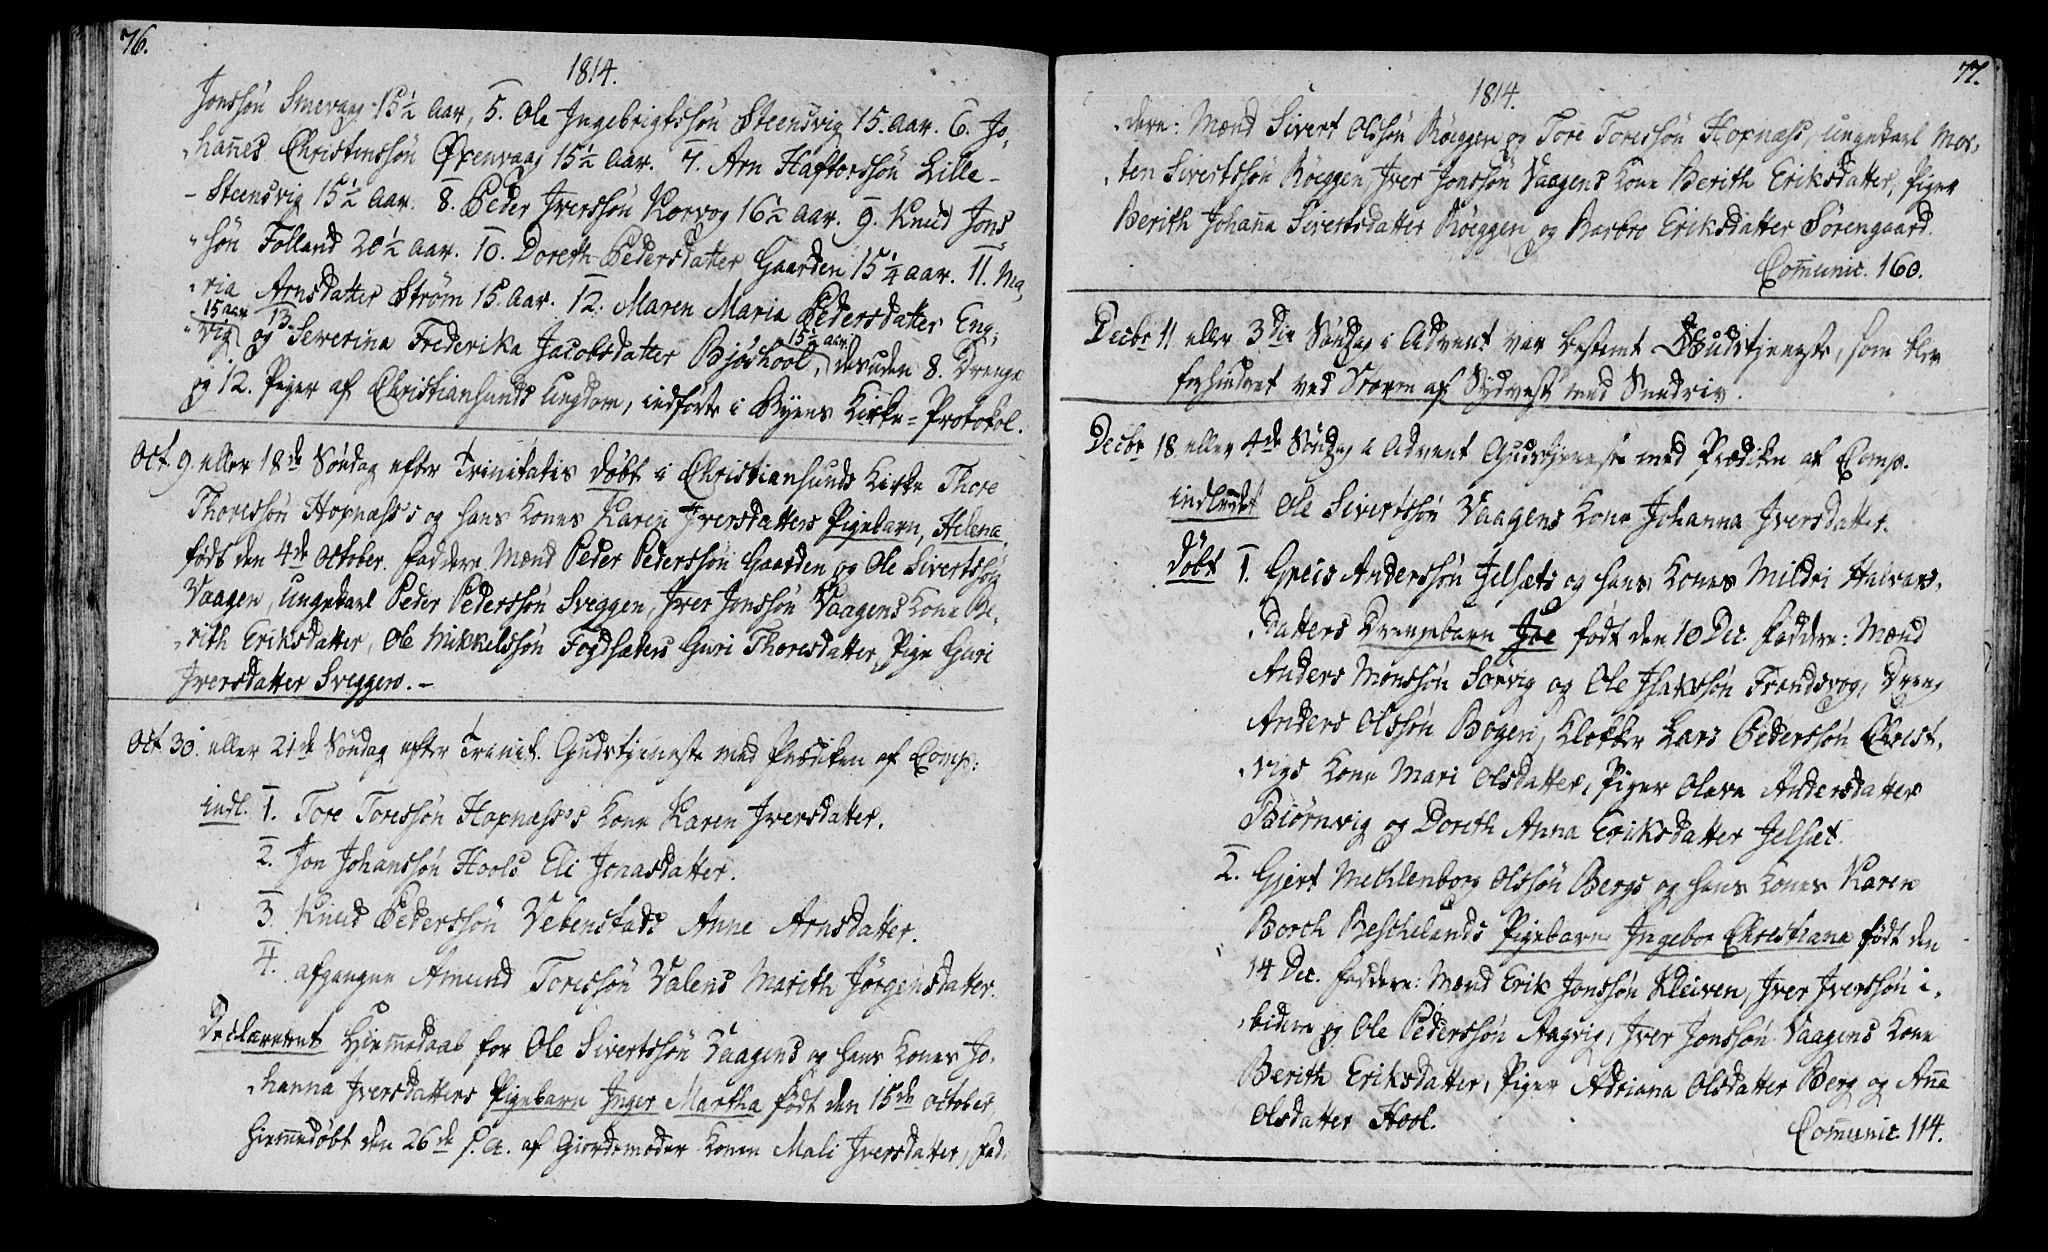 76.
1814.
Jonssøn Smevaag 15½ Aar, 5. Ole Ingebrigtssøn Steensvig 15. Aar. 6. Jo,
hañes Christenssøn Øxenvaag 15½ Aar. 7. Arn Haftorssøn Lille-
-Steensvig 15½ Aar. 8. Peder Iverssøn Korvog 16½ Aar. 9. Knud Jons,
søn Folland 20½ Aar. 10. Doreth Pedersdatter Gaarden 15¼ Aar. 11. Ma,
ria Arnsdatter Strøm 15. Aar. 12. Maren Maria Pedersdatter Eng,
15 aar 13. 15½ aar
vig og Severina Frederika Jacobsdatter Bjøshool, desuden 8. Drenge
og 12. Piger af Christiansunds Ungdom, indførte i Byens Kirke-Protokol.
Oct. 9. eller 18de Søndag efter Trinitatis døbt i Christiansunds Kirke Thore
Thoressøn Hopnæss's og hans Kones Karen Iversdatters Pigebarn, Helena,
født den 4de October. Faddere: Mænd Peder Pederssøn Gaarden og Ole Sivertssøn
Vaagen, Ungekarl Peder Pederssøn Sveggen, Iver Jonssøn Vaagens Kone Be,
rith Eriksdatter, Ole Mikkelssøn Fogdsæters Guri Thoresdatter, Pige Guri
Iversdatter Sveggen. -
Oct. 30. eller 21de Søndag efter Trinit. Gudstjeneste med Prædiken af Comp:
indl. 1. Tore Toressøn Hopnæss's Kone Karen Iversdatter.
2. Jon Johanssøn Hools Eli Jonasdatter.
3. Knud Pederssøn Vebenstads Anne Arnsdatter.
4. afgangne Amund Toressøn Valens Marith Jørgensdatter.
Declareret Hjem̄edaab for Ole Sivertssøn Vaagens og hans Kones Jo,
hanna Iversdatters Pigebarn Inger Martha født den 15de October,
hiem̄edøbt den 26de s. A. af Giordemoder Konen Mali Iversdatter, Fad,
77.
1814.
dere: Mænd Sivert Olssøn Røeggen og Tore Toressøn Hopnæss, Ungekarl Mor,
ten Sivertssøn Røeggen, Iver Jonssøn Vaagens Kone Berith Eriksdatter, Piger
Berith Johan̄a Sivertsdatter Røeggen og Barbro Eriksdatter Sørengaard.
Com̄unic. 160.
Decbr 11 eller 3die Søndag i Advent var bestemt Gudstjeneste, som blev
forhindret ved Storm af Sydvest med Sneedriv.
Decbr 18 eller 4de Søndag i Advent Gudstjeneste med Prædiken af Comp.
indledet Ole Sivertssøn Vaagens Kone Johanna Iversdatter.
Døbt 1. Greis Anderssøn Jelsæts og hans Kones Mildri Halvors,
datters Drengebarn Joe født den 10 Dec. Faddere: Mænd
Anders Monssøn Sørvig og Ole Isakssøn Frendsvog, Dreng
Anders Olssøn Bogen, Klokker Lars Pederssøn Christ,
vigs Kone Mari Olsdatter, Piger Olava Andersdatter
Biørnvig og Doreth Anna Eriksdatter Jelsæt.
2. Gjert Mechlenborg Olssøn Bergs og hans Kones Karen
Borch Beschelands Pigebarn Ingebor Christiana født den
14 Dec. Faddere: Mænd Erik Jonssøn Kleiven, Iver Iverssøn i,
bidem og Ole Pederssøn Aagvig, Iver Jonssøn Vaagens Kone
Berith Eriksdatter, Piger Adriana Olsdatter Berg og An̄a
Olsdatter Hool.
Com̄unic. 114.